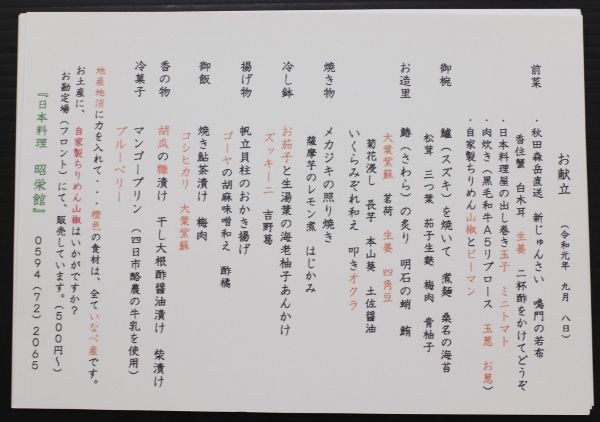 お献立 (令和元年 九月 八日)
前菜 ・秋田森岳直送 新じゅんさい 鳴門の若布
香住蟹 白木耳 生姜 二杯酢をかけてどうぞ
・日本料理屋の出し巻き玉子 ミニトマト
・肉炊き(黒毛和牛A5リブロース 玉葱 お葱)
・自家製ちりめん山椒とピーマン
御椀 鱸(スズキ)を焼いて 煮麺 桑名の海苔
松茸 三つ葉 茄子生麩 梅肉 青柚子
お造里 鰆(さわら)の炙り 明石の蛸 鮪
大葉紫蘇 茗荷 生姜 四角豆
菊花浸し 長芋 本山葵 土佐醤油
いくらみぞれ和え 叩きオクラ
焼き物 メカジキの照り焼き
薩摩芋のレモン煮 はじかみ
冷し鉢 お茄子と生湯葉の海老柚子あんかけ
ズッキーニ 吉野葛
揚げ物 帆立貝柱のおかき揚げ
ゴーヤの胡麻味噌和え 酢橘
御飯 焼き鮎茶漬け 梅肉
コシヒカリ 大葉紫蘇
香の物 胡瓜の糠漬け 干し大根酢醤油漬け 柴漬け
冷菓子 マンゴープリン (四日市酪農の牛乳を使用)
ブルーベリー
地産地消に力を入れて・・・橙色の食材は、全ていなべ産です。
お土産に、自家製ちりめん山椒はいかがですか?
お勘定場(フロント)にて、販売しています。(500円~)
『日本料理 昭栄館』 0594(72)2065